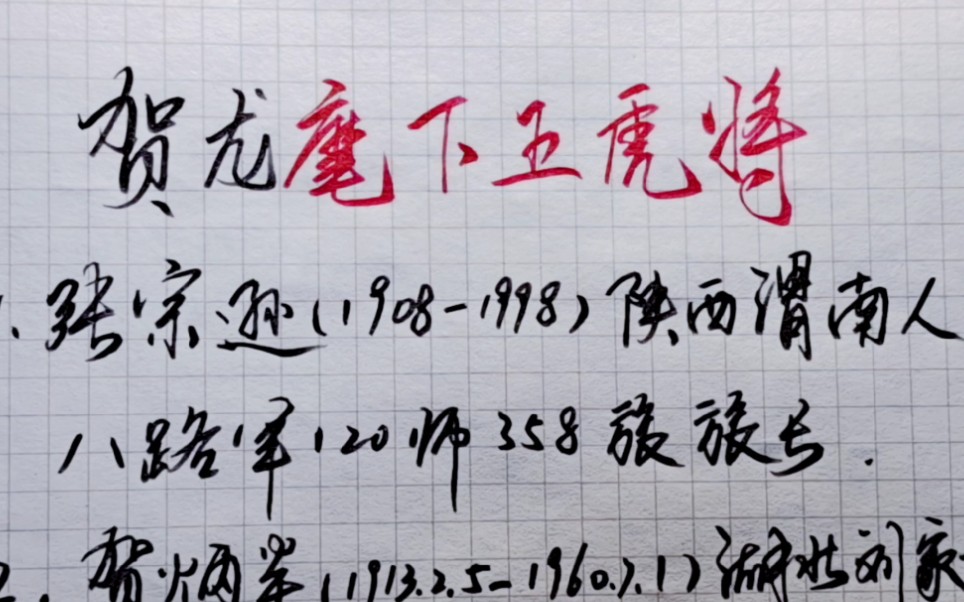 贺龙麾下五虎将
1.张宗逊(1908-1998)陕西渭南人
八路军120师358旅旅长.
2.贺炳炎(1913.2.5-1960.7.1)湖北刘家